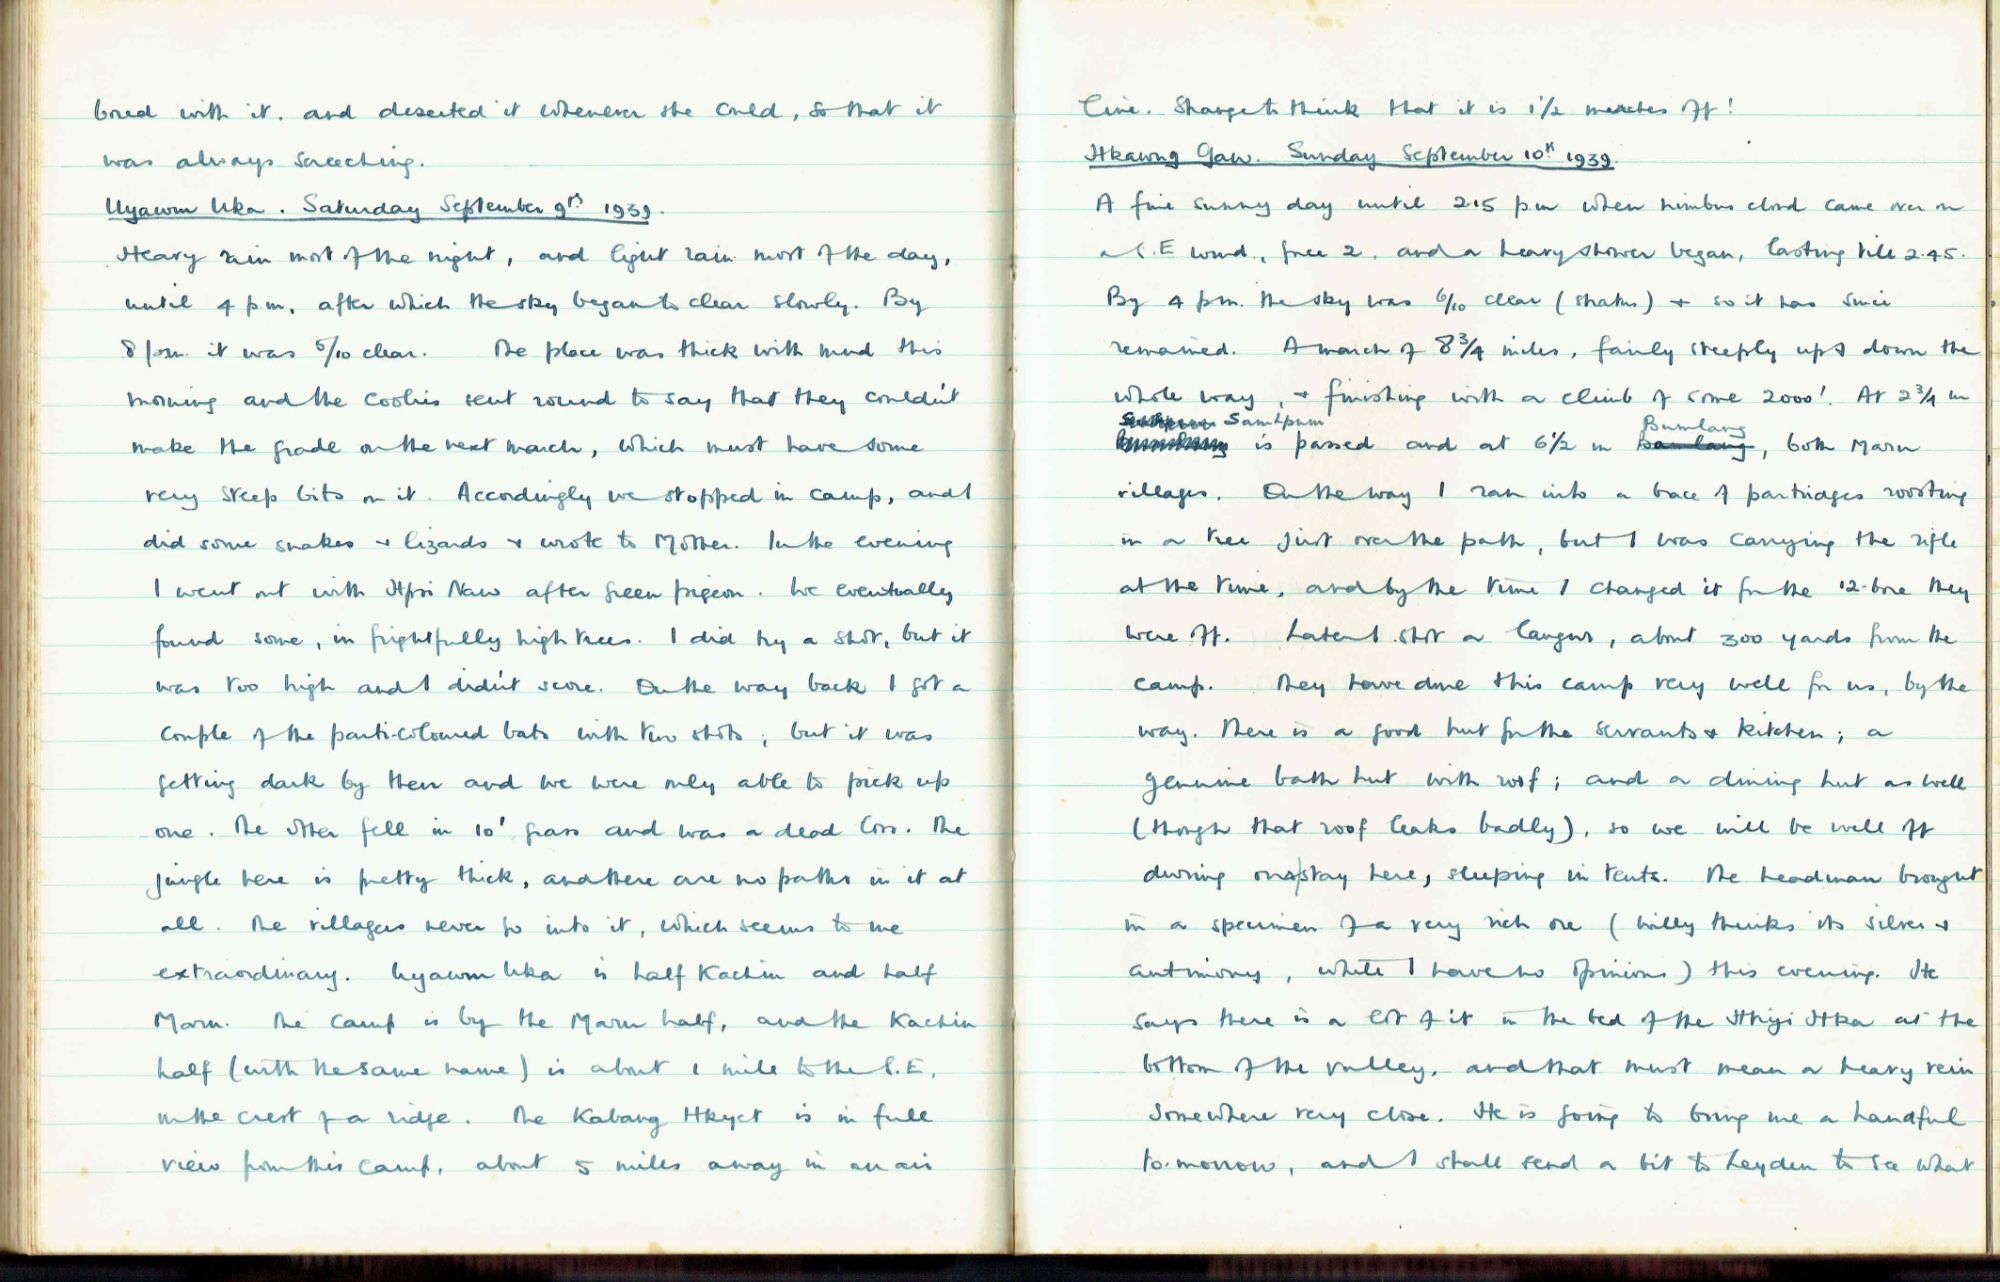 bored with it. and deserted it whenever she could, so that it
was always screeching.
Uyawm Uka. Saturday September 9th 1939.
Heavy rain most of the night, and light rain most of the day,
until 4 pm, after which the sky began to clear slowly. By
8 pm it was 5/10 clear. The place was thick with mud this
morning and the coolies sent round to say that they couldn't
make the grade on the next march, which must have some
very steep bits on it. Accordingly we stopped in camp, and I
did some snakes + lizards + wrote to Mother. In the evening
I went out with Hpri Naw after green pigeon. We eventually
found some, in frightfully high trees. I did try a shot, but it
was too high and I didn't score. On the way back I got a
couple of the parti-coloured bats with two shots; but it was
getting dark by then and we were only able to pick up
one. The other fell in 10' grass and was a dead loss. The
jungle here is pretty thick, and there are no paths in it at
all. The villagers never go into it, which seems to me
extraordinary. Uyawm Uka is half Kachin and half
Maru. The camp is by the Maru half, and the Kachin
half (with the same name) is about 1 mile to the S.E.
on the crest of a ridge. The Kabang Hkyet is in full
view from this camp, about 5 miles away in an air
line. Strange to think that it is 1 1/2 marches off!
Hkawng Gaw. Sunday September 10th 1939.
A fine sunny day until 2.15 pm when nimbus cloud came over on
a S.E wind, force 2, and a heavy shower began, lasting till 2.45.
By 4 pm. the sky was 6/10 clear (stratus) + so it has since
remained. A march of 8 3/4 miles, fairly steeply up + down the
whole way, + finishing with a climb of some 2000'. At 2 3/4 m
Samtpum is passed and at 6 1/2 m Bumlang, both Maru
villages. On the way I ran into a brace of partridges roosting
in a tree just over the path, but I was carrying the rifle
at the time, and by the time I changed it for the 12-bore they
were off. Later I shot a langur, about 300 yards from the
camp. They have done this camp very well for us, by the
way. There is a good hut for the servants + kitchen; a
genuine bath hut with roof; and a dining hut as well
(though that roof leaks badly), so we will be well off
during our stay here, sleeping in tents. The headman brought
in a specimen of a very rich ore (Willy thinks its silver +
antimony, while I have no opinions) this evening. He
says there is a lot of it in the bed of the Hkyi Hka at the
bottom of the valley, and that must mean a heavy vein
somewhere very close. He is going to bring me a handful
to-morrow, and I shall send a bit to Leyden to see what